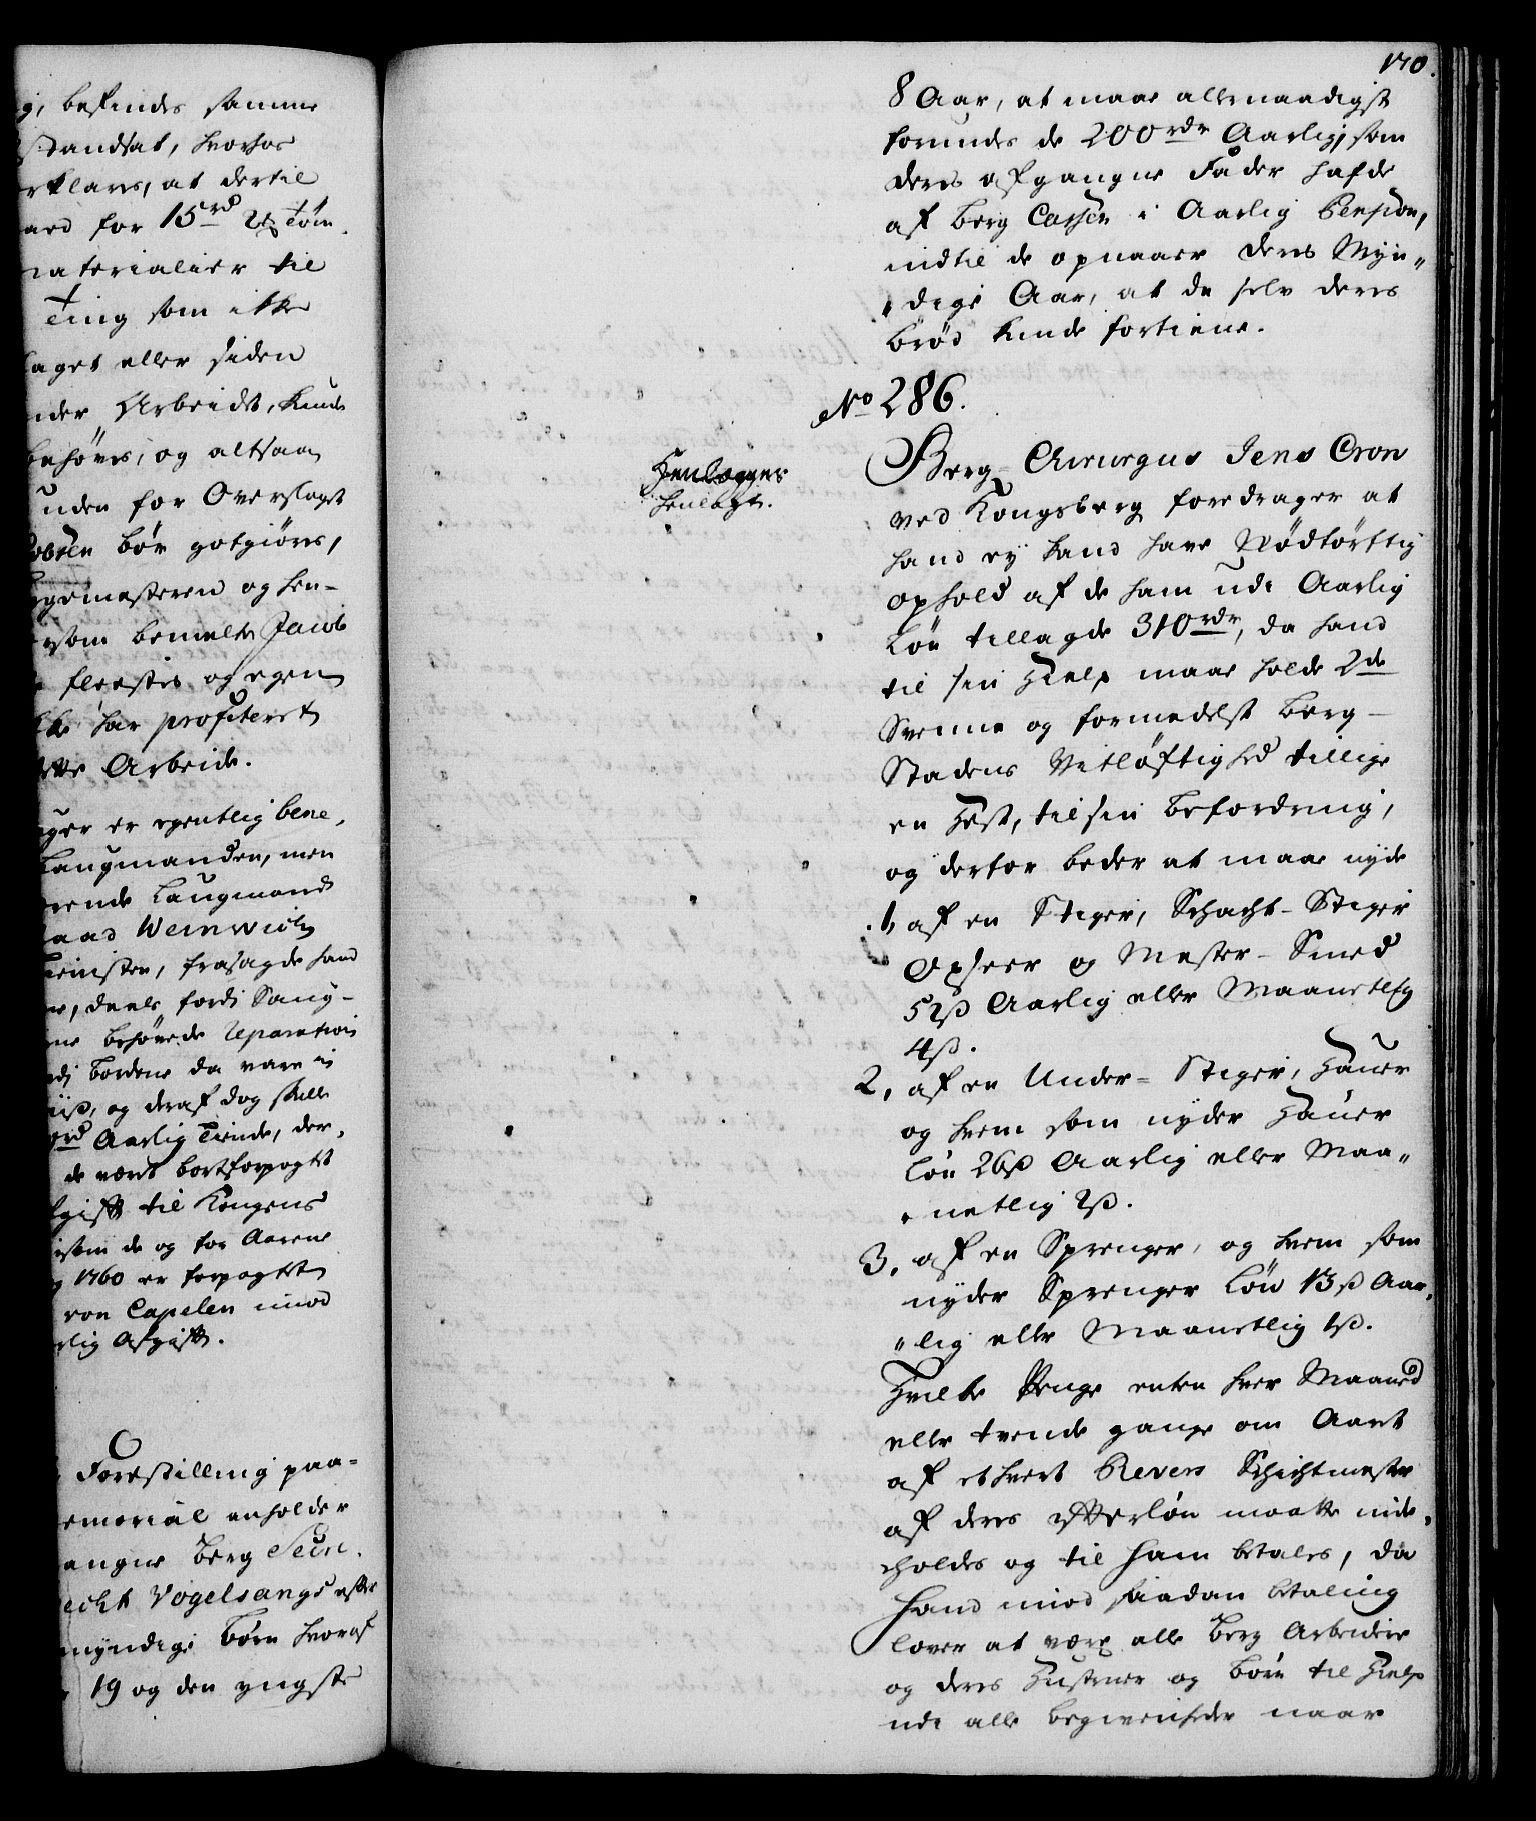 g, befindes samme
standsat, hvorhos
rklares, at dertil
ard for 15 rd
materialier til
Ting som ikke
aget eller siden
nder Arbeidet, kunde
behøves, og altsaa
uden for Overslaget
bør godtgiøres,
gemesteren og hen-
som bemelte Jacob
fleeste, og egen
har profiteret
tte Arbeide.
ger er egentlig bene,
Laugmanden, men
rende Laugmand
aad Weinwich
frasagde hand
deels fordi Saug-
ne behøvede Reparation
di Bordene da vare i
iis, og deraf dog skulle
rd Aarlig Tiende, der,
de været bortforpagtet
gift til Kongens
som de og for Aarene
1760 er forpagtet
von Capelen imod
rlig Afgift.
Forestilling paa-
emorial anholder
angne Berg Secr.
echt Vogelsangs efter
myndige Børn hvoraf
19 og den yngste
170.
8 Aar, at maae allernaadigst
forundes de 200 rdr Aarlig, som
deres afgangne Fader hafde
af Berg Cassen i Aarlig Pension,
indtil de opnaaer deres Myn„
„dige Aar, at de selv deres
brød kunde fortiene.
No 286.
Henlægges
henlagt.
Berg-Chirurgus Jens Cron
ved Kongsberg foredrager at
hand ey kand have Nødtørftig
ophold af de ham udi Aarlig
Løn tillagde 310 rdr, da hand
til sin Hielp maae holde 2de
Svenne og formedelst Berg-
Stadens Vitløftighed tillige
en Hest, til sin befordring,
og derfor beder at maae nyde
1, af en Stiger, Schacht-Stiger
Opseer og Mester-Smed
52 ß Aarlig eller Maanetlig
4 ß.
2, af en Under-Stiger, Hauer
og hvem som nyder Hauer
Løn 26 ß Aarlig eller Maa„
„netlig 2 ß.
3, af en Sprenger, og hvem som
nyder Sprenger Løn 13 ß Aar„
„lig eller Maanetlig 1 ß.
Hvilke Penge enten hver Maaned
eller tvende gange om Aaret
af ethvert Revers Schichtmester
af deres efterløn maatte inde„
holdes og til ham betales, da
hand imod saadan betaling
lover at være alle Berg Arbeidere
og deres Hustruer og Børn til Hielp
udi alle begivenheder naar